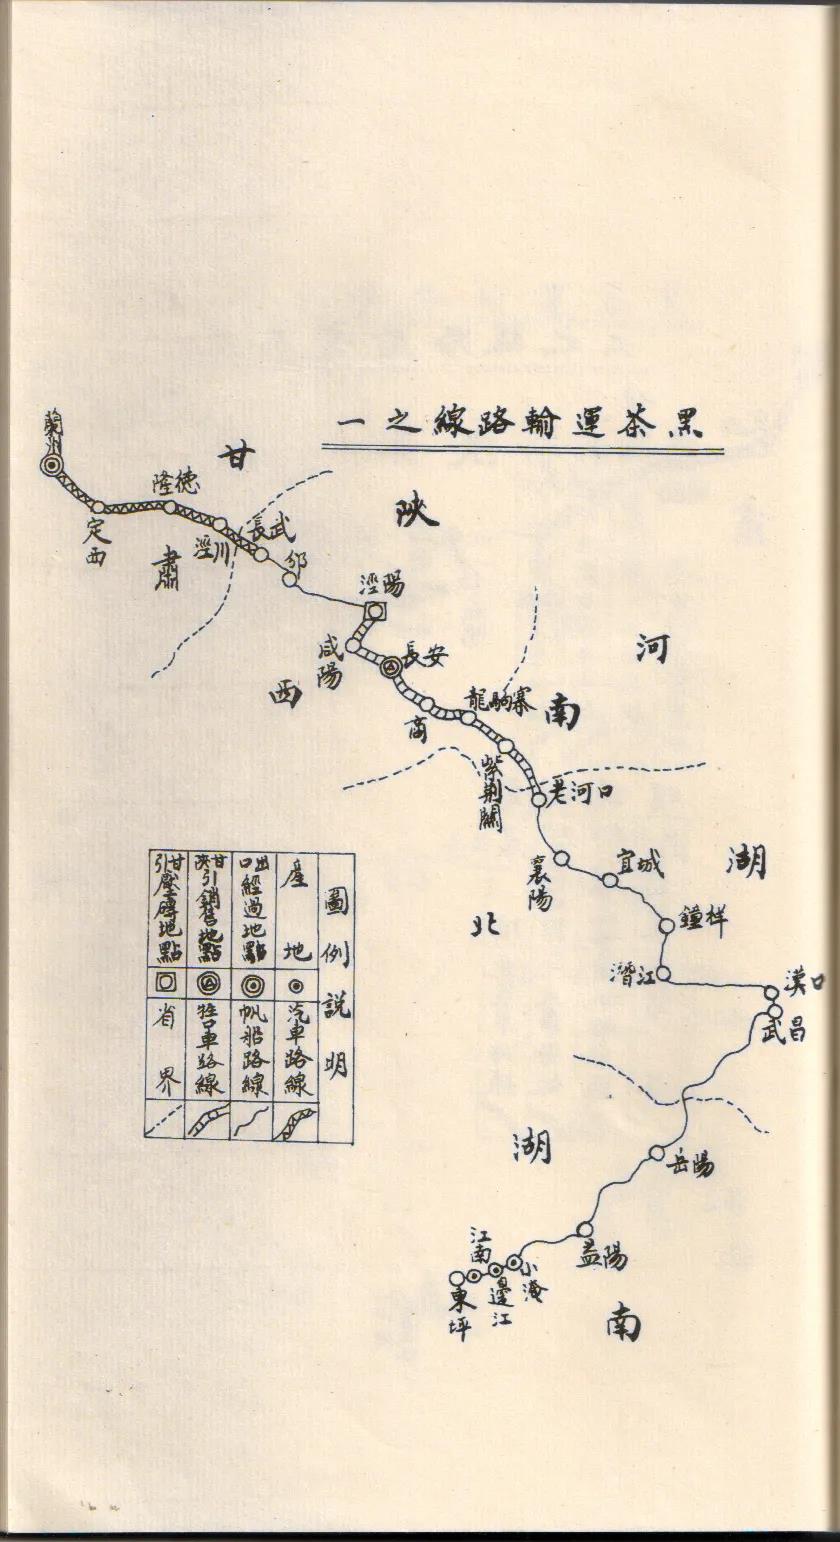 黑茶運輸路線之一
蘭州
定西
隆德
涇川
長武
邠
涇陽
咸陽
長安
商
龍駒寨
紫荆關
老河口
襄陽
宜城
鐘祥
潛江
漢口
武昌
岳陽
益陽
小淹
邊江
江南
東坪
甘肅
陝西
河南
湖北
湖南
圖例說明
產地
出口經過地點
陝甘引銷售地點
甘引壓磚地點
汽車路線
帆船路線
省界